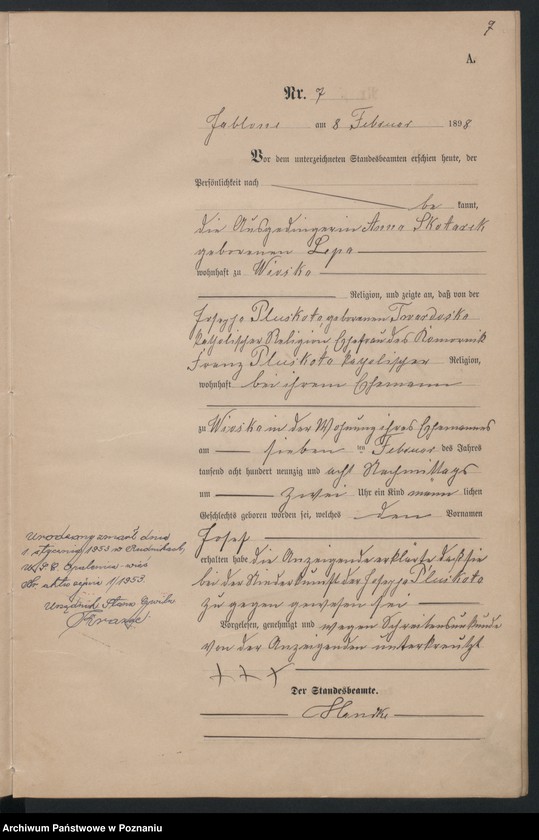 7
A.
Nr. 7
Jablone am 8 Februar 1898
Vor dem unterzeichneten Standesbeamten erschien heute, der
Persönlichkeit nach
be kannt,
die Ausgedingerin Anna Skotarek
geborenen Lepa
wohnhaft zu Wiosko
Religion, und zeigte an, daß von der
Josepha Pluskota, geborenen Twardoska
katholischer Religion, Ehefrau des Komornik
Franz Pluskota katholischer Religion,
wohnhaft bei ihrem Ehemann
zu Wiosko in der Wohnung ihres Ehemannes
am sieben ten Februar des Jahres
tausend acht hundert neunzig und acht Nachmittags
um zwei Uhr ein Kind männ lichen
Geschlechts geboren worden sei, welches den Vornamen
Josef
erhalten habe die Anzeigende erklärte daß sie
bei der Niederkunft der Josepha Pluskota
zu gegen gewesen sei
Vorgelesen, genehmigt und wegen Schreibensunkunde
von der Anzeigenden unterkreuzt
+ + +
Der Standesbeamte.
Urodzony zmarł dnia
1 stycznia 1953 w Rudnikach
Opalenica-wieś
Nr. aktu zejścia 1/1953.
Urzędnik Stanu Cywiln
Archiwum Państwowe w Poznaniu